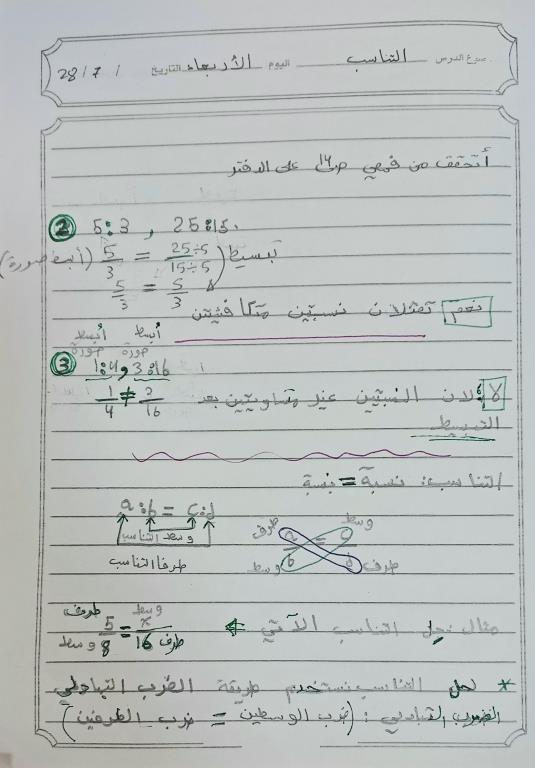 موضوع الدرس التناسب اليوم الأربعاء التاريخ 28 / 7 /
أتحقق من فهمي ص١٤ على الدفتر
2 5:3 , 25:15.
تبسيط (25÷5 / 15÷5 = 5/3 (أبسط صورة)
5/3 = 5/3
نعم تمثلان نسبتين متكافئتين
أبسط صورة أبسط صورة
3 1:4 , 3:16
1/4 ≠ 3/16
لا لان النسبتين غير متساويتين بعد
التبسيط
التناسب: نسبة = نسبة
a:b = c:d
وسط التناسب
طرفا التناسب
طرف a/b = c/d وسط
وسط طرف
مثال نحل التناسب الآتي ←
طرف 5/8 = x/16 وسط
وسط طرف
* لحل التناسب نستخدم طريقة الضرب التبادلي
الضرب التبادلي : (ضرب الوسطين = ضرب الطرفين)